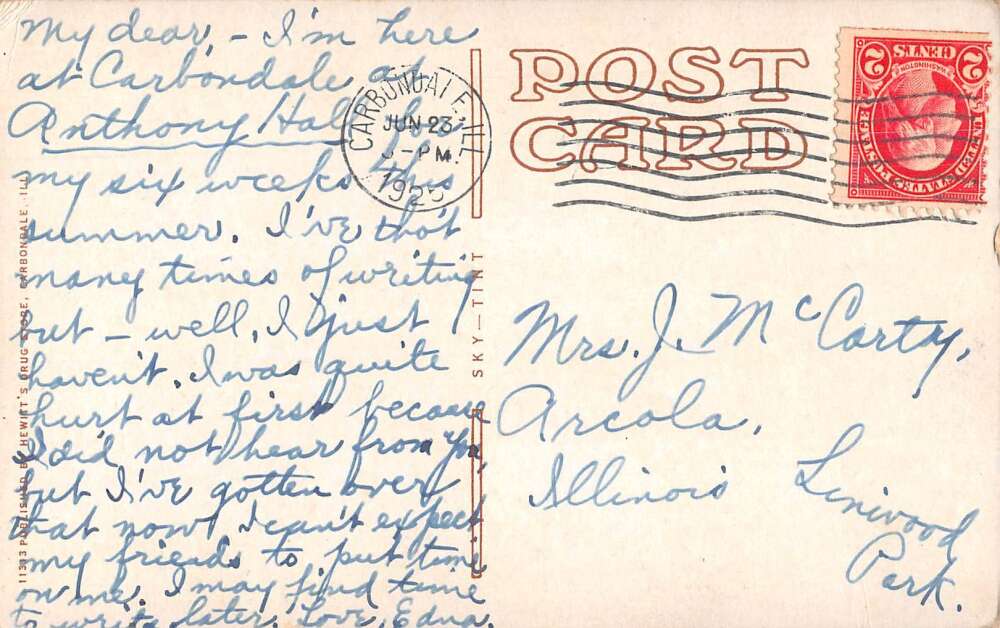 My dear, - I'm here
at Carbondale at
Anthony Hall for
my six weeks this
summer. I've tho't
many times of writing
but - well, I just
haven't. I was quite
hurt at first because
I did not hear from you,
but I've gotten over
that now. I can't expect
my friends to put time
on me. I may find time
to write later. Love, Edna.
11383 PUBLISHED BY HEWITT'S DRUG STORE, CARBONDALE, ILL.
SKY-TINT
POST
CARD
CARBONDALE, ILL.
JUN 23
-PM
1925
2 CENTS 2
WASHINGTON
UNITED STATES POSTAGE
Mrs. J. McCarty,
Arcola,
Illinois
Linwood
Park.